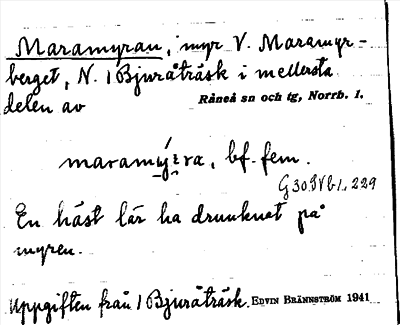 Maramyran, myr V. Maramyr-
berget, N. i Bjuråträsk i mellersta
delen av Råneå sn och tg, Norrb. l.
maramy´ra, bf. fem.
En häst lär ha drunknat på
myren.
Uppgiften från i Bjuråträsk. EDVIN BRÄNNSTRÖM 1941